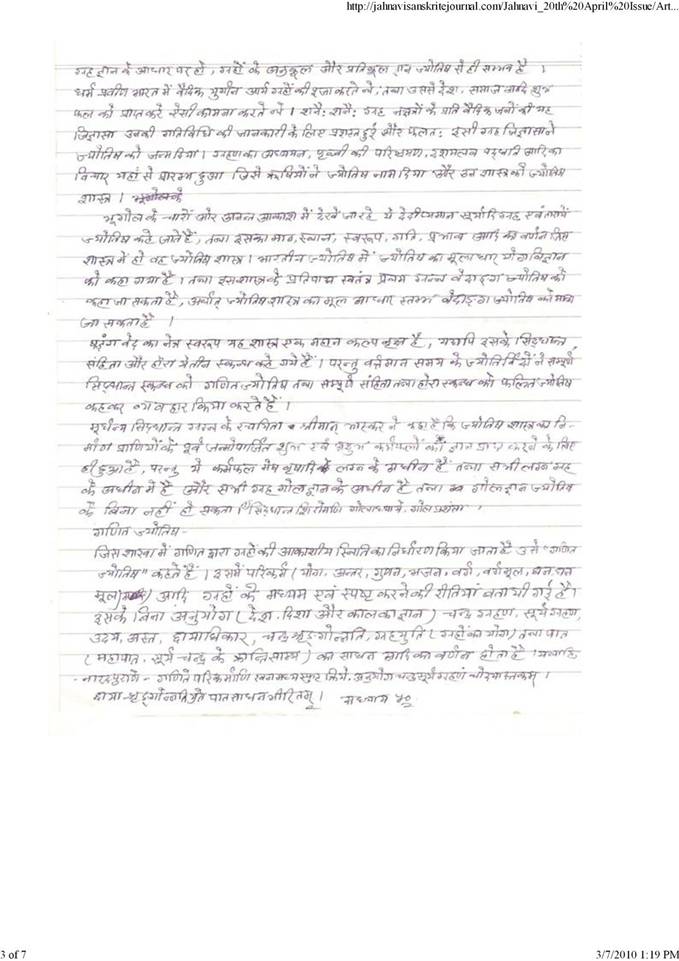 http://jahnavisanskritejournal.com/Jahnavi_20th%20April%20Issue/Art...
ग्रह ज्ञान के आधार पर हो, ग्रहों के अनुकूल और प्रतिकूल ज्ञान ज्योतिष से ही सम्भव है ।
धर्म प्रवीण भारत में वैदिक युगीन आर्य ग्रहों की पूजा करते थे, तथा उससे देश, समाज आदि शुभ
फल को प्राप्त करे ऐसी कामना करते थे । शनैः शनैः ग्रह नक्षत्रों के प्रति वैदिक जनों की यह
जिज्ञासा उनकी गतिविधि की जानकारी के लिए प्रशस्त हुई और फलतः इसी ग्रह जिज्ञासा ने
ज्योतिष को जन्म दिया । ग्रहण का अध्ययन, पृथ्वी की परिभ्रमण, दशमलव पद्धति आदि का
विचार यहां से प्रारम्भ हुआ जिसे ऋषियों ने ज्योतिष नाम दिया और उस शास्त्र को ज्योतिष
शास्त्र । भूगोल के
भूगोल के चारों और अनन्त आकाश में देखे जा रहे ये देदीप्यमान सूर्यादि ग्रह एवं तारायें
ज्योतिष कहे जाते हैं, तथा इसका मान, स्थान, स्वरूप, गति, प्रभाव आदि का वर्णन जिस
शास्त्र में हो वह ज्योतिष शास्त्र । भारतीय ज्योतिष में ज्योतिष का मूलाधार योग विज्ञान
को कहा गया है । तथा इस शास्त्र के प्रतिपाद्य स्वतंत्र प्रथम ग्रन्थ वेदाङ्ग ज्योतिष को
कहा जा सकता है, अर्थात् ज्योतिष शास्त्र का मूल आधार स्तम्भ वेदाङ्ग ज्योतिष को माना
जा सकता है ।
षडंग वेद का नेत्र स्वरूप यह शास्त्र एक महान कल्प वृक्ष है, यद्यपि इसके सिद्धान्त,
संहिता और होरा ये तीन स्कन्ध कहे गये हैं । परन्तु वर्तमान समय के ज्योतिर्विदों ने सम्पूर्ण
सिद्धान्त स्कन्ध को गणित ज्योतिष तथा सम्पूर्ण संहिता तथा होरा स्कन्ध को फलित ज्योतिष
कहकर व्यवहार किया करते हैं ।
मूर्धन्य सिद्धान्त ग्रन्थ के रचयिता श्रीमान् भास्कर ने कहा है कि ज्योतिष शास्त्र का नि-
र्माण प्राणियों के पूर्व जन्मोपार्जित शुभ एवं अशुभ कर्मफलों को ज्ञान प्राप्त करने के लिए
ही हुआ है, परन्तु ये कर्मफल मेष वृषादि के लग्न के अधीन है तथा सभी लग्न ग्रह
के अधीन में है और सभी ग्रह गोल ज्ञान के अधीन है तथा गोल ज्ञान ज्योतिष
के बिना नहीं हो सकता । सिद्धान्त शिरोमणि गोलाध्याये- गोल प्रशंसा ।
गणित ज्योतिष -
जिस शाखा में गणित द्वारा ग्रहों की आकाशीय स्थिति का निर्धारण किया जाता है उसे "गणित
ज्योतिष" कहते हैं । इसमें परिकर्म (योग, अन्तर, गुणन, भजन, वर्ग, वर्गमूल, घन, घन
मूल) आदि ग्रहों की मध्यम एवं स्पष्ट करने की रीतियां बतायी गई है।
इसके बिना अनुयोग (देश, दिशा और काल का ज्ञान) चन्द्र ग्रहण, सूर्य ग्रहण,
उदय, अस्त, छायाधिकार, चन्द्र श्रृङ्गोन्नति, ग्रहयुति (ग्रहों का योग) तथा पात
(महापात, सूर्य चन्द्र के क्रान्तिसाम्य) का साधन आदि का वर्णन होता है । यथाहि
नारदपुराणे - गणिते परिकर्माणि खगमध्यस्फुट क्रिये. अनुयोग चन्द्र सूर्य ग्रहणं चोदयास्तकम् ।
छाया-श्रृङ्गोन्नतियुते पातसाधनमीरितम् ।
3 of 7
3/7/2010 1:19 PM